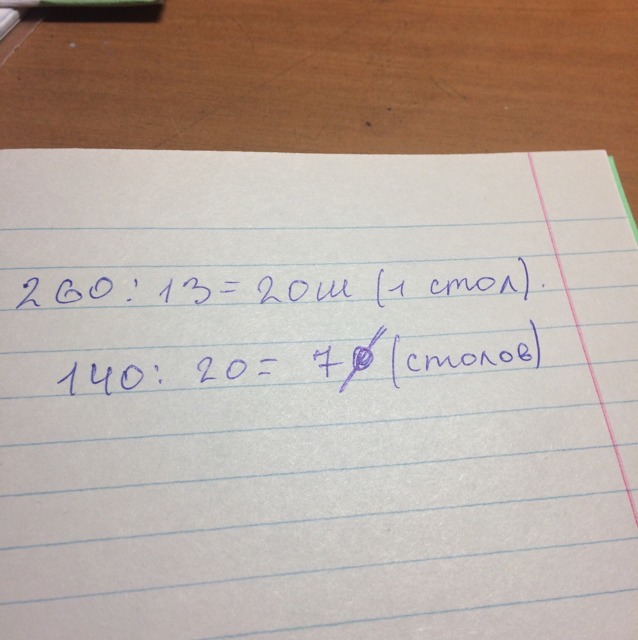 260 : 13 = 20ш (1 стол).
140 : 20 = 7 (столов)